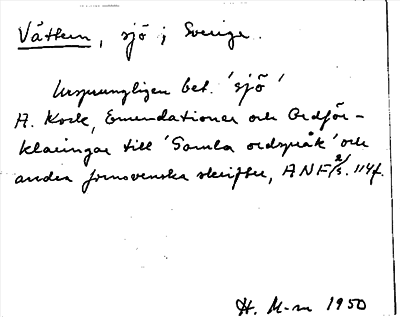 Vättern, sjö i Sverige.
Ursprungligen bet. 'sjö'
A. Kock, Emendationer och Ordför-
klaringar till 'Gamla ordspråk' och
andra fornsvenska skrifter, ANF 2/3. 114f.
H. M-m 1950